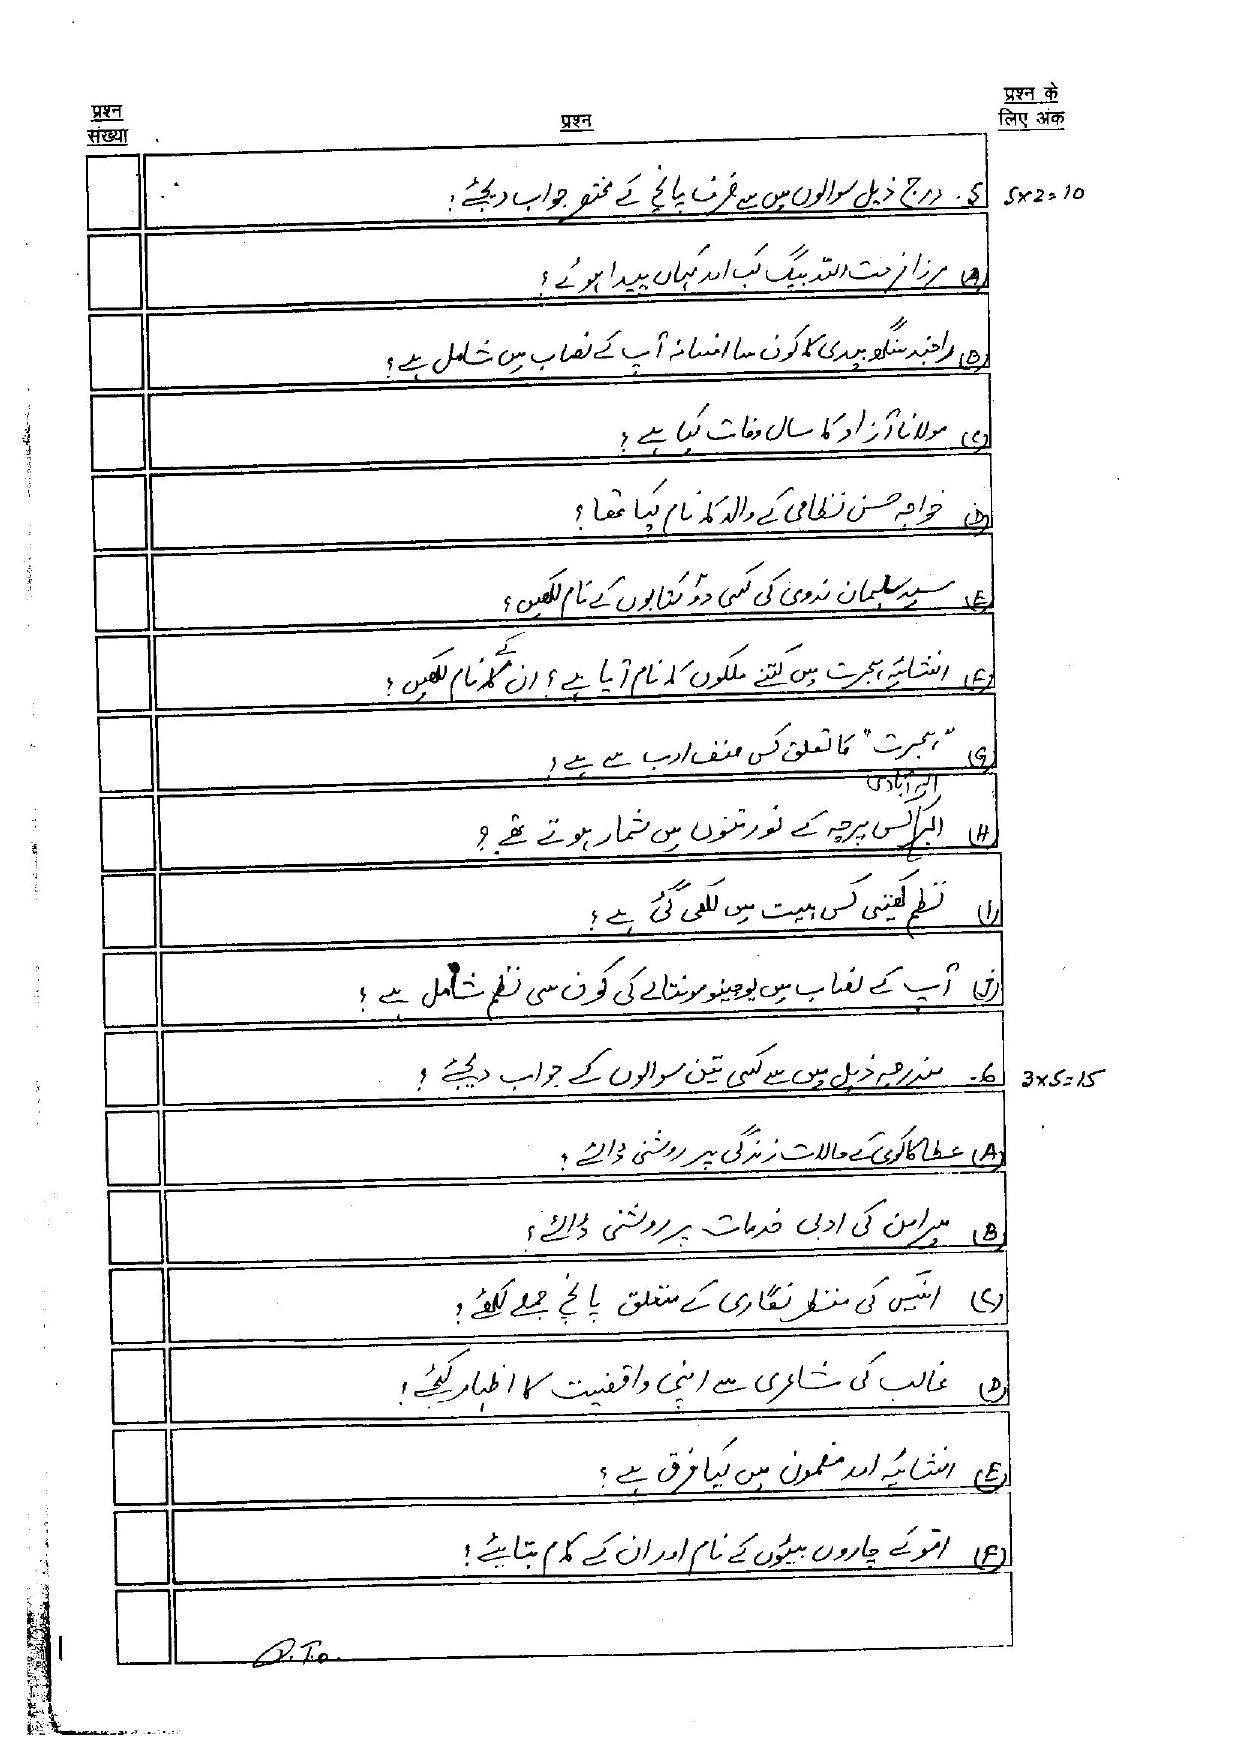 प्रश्न संख्या
प्रश्न
प्रश्न के लिए अंक
5. درج ذیل سوالوں میں سے صرف پانچ کے مختصر جواب دیجئے؟ 5x2=10
(A) مرزا فرحت اللہ بیگ کب اور کہاں پیدا ہوئے؟
(B) راجندر سنگھ بیدی کا کون سا افسانہ آپ کے نصاب میں شامل ہے؟
(C) مولانا آزاد کا سال وفات کیا ہے؟
(D) خواجہ حسن نظامی کے والد کا نام کیا تھا؟
(E) سید سلیمان ندوی کی کسی دو کتابوں کے نام لکھیں؟
(F) انشائیہ ہجرت میں کتنے ملکوں کا نام آیا ہے؟ ان کے نام لکھیں؟
(G) "ہجرت" کا تعلق کس صنف ادب سے ہے؟
(H) اکبر الہ آبادی کس پرچہ کے نورتنوں میں شمار ہوتے تھے؟
(I) نظم کھیتی کس ہیئت میں لکھی گئی ہے؟
(J) آپ کے نصاب میں یوجینو مونتالے کی کون سی نظم شامل ہے؟
6. مندرجہ ذیل میں سے کسی تین سوالوں کے جواب دیجئے؟ 3x5=15
(A) عطا کاکوی کے حالات زندگی پر روشنی ڈالئے؟
(B) میر امن کی ادبی خدمات پر روشنی ڈالئے؟
(C) انیس کی منظر نگاری کے متعلق پانچ جملے لکھئے؟
(D) غالب کی شاعری سے اپنی واقفیت کا اظہار کیجئے؟
(E) انشائیہ اور مضمون میں کیا فرق ہے؟
(F) کے چاروں بیٹوں کے نام اور ان کے کام بتایئے؟
P.T.O.